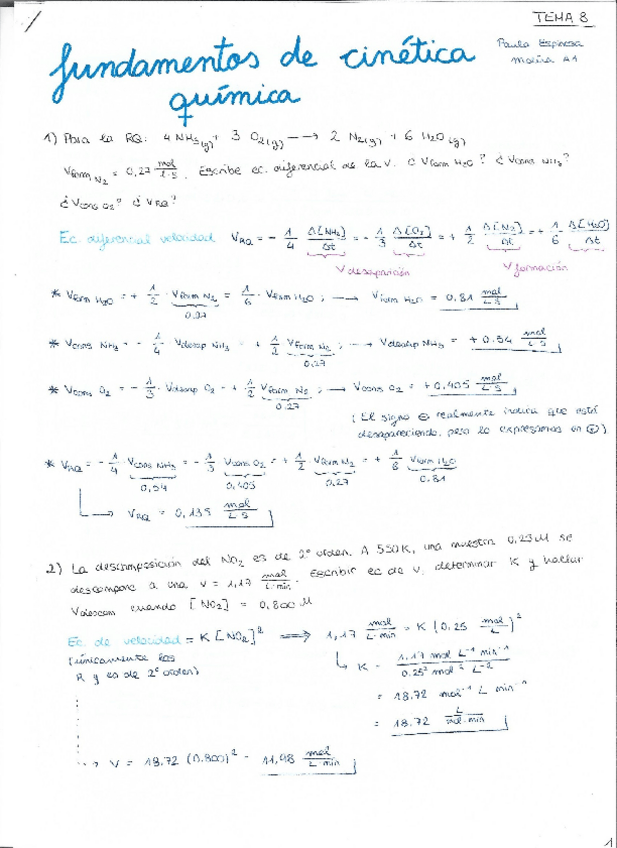 TEMA 8
Paula Espinosa
Molina A1
fundamentos de cinética
química
1) Para la RQ: 4 NH3(g) + 3 O2(g) → 2 N2(g) + 6 H2O(g)
Vform N2 = 0,27 mol/L·s. Escribe ec. diferencial de la V. ¿Vform H2O? ¿Vcons NH3?
¿Vcons O2? ¿VRQ?
Ec. diferencial velocidad VRQ = - 1/4 Δ[NH3]/Δt = - 1/3 Δ[O2]/Δt = + 1/2 Δ[N2]/Δt = + 1/6 Δ[H2O]/Δt
V desaparición V formación
* Vform H2O = + 1/2 · Vform N2 = 1/6 · Vform H2O ; → Vform H2O = 0.81 mol/L s
0.27
* Vcons NH3 = - 1/4 · Vdesap NH3 = + 1/2 Vform N2 ; → Vdesap NH3 = + 0.54 mol/L s
0.27
* Vcons O2 = - 1/3 · Vdesap O2 = + 1/2 Vform N2 ; → Vcons O2 = + 0.405 mol/L s
0.27
(El signo ⊖ realmente indica que está
desapareciendo, pero lo expresamos en ⊕)
* VRQ = - 1/4 · Vcons NH3 = - 1/3 Vcons O2 = + 1/2 · Vform N2 = + 1/8 Vform H2O
0,54 0,405 0,27 0.81
→ VRQ = 0,135 mol/L s
2) La descomposición del NO2 es de 2º orden. A 550K, una muestra 0,25M se
descompone a una v = 1,17 mol/L·min. Escribir ec de v. determinar K y hallar
Vdescom cuando [NO2] = 0,800 M
Ec. de velocidad = K [NO2]² ⟹ 1,17 mol/L·min = K (0,25 mol/L)²
(únicamente los
R y es de 2º orden)
K = 1,17 mol L⁻¹ min⁻¹ / 0.25² mol² L⁻²
= 18.72 mol⁻¹ L min⁻¹
= 18.72 L/mol·min
→ V = 18.72 (0.800)² = 11,98 mol/L min
1